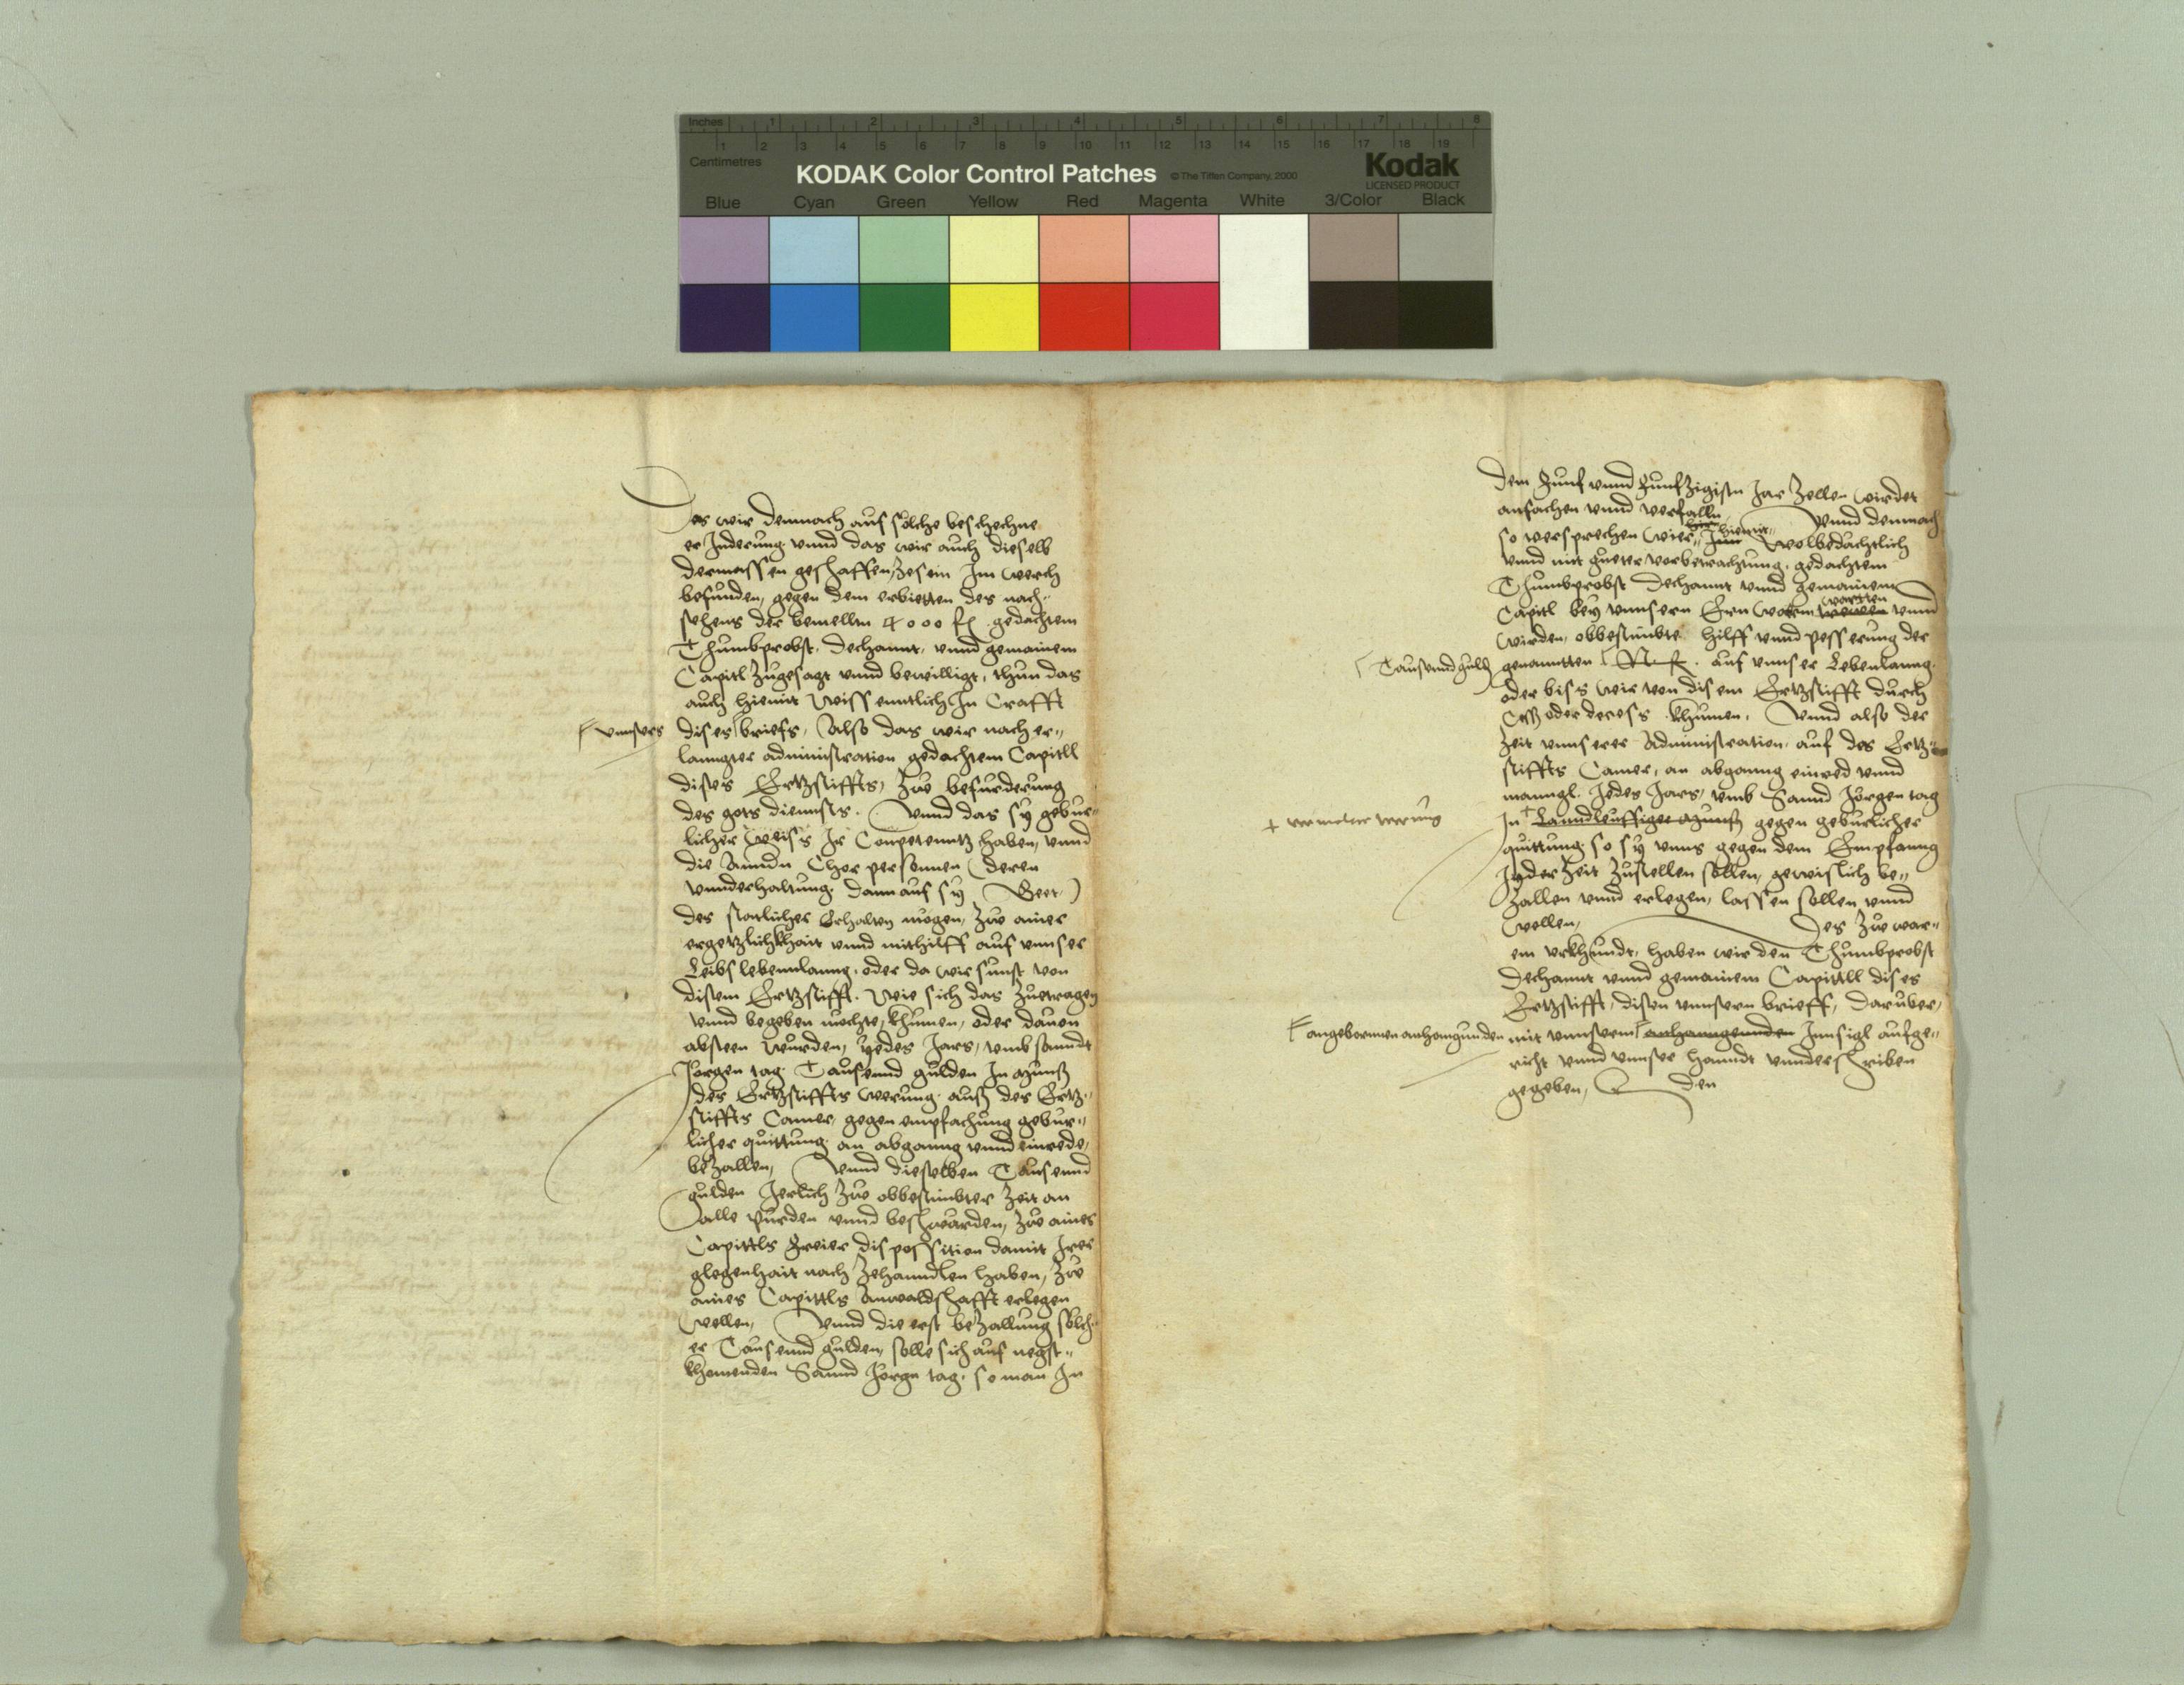 Inches 1 2 3 4 5 6 7 8
Centimetres 1 2 3 4 5 6 7 8 9 10 11 12 13 14 15 16 17 18 19
KODAK Color Control Patches © The Tiffen Company, 2000 Kodak
LICENSED PRODUCT
Blue Cyan Green Yellow Red Magenta White 3/Color Black
Das wir demnach auf solche beschechne
erInderung vnnd das wir auch dieselb
dermassen geschaffen, zesein Im werch
befunden, gegen dem erbietten des nach-
sehens der bemellten 4000 fl. gedachtem
Thumbprobst, Dechannt, vnnd gemainem
Capitl zugesagt vnnd bewilligt, thun das
auch hiemit wissenntlich In Crafft
vnnsers
dises briefs, Also das wir nach er-
lanngter administration gedachtem Capitll
dises Ertzstiffts, zw befurderung
des gots diennsts. Vnnd das sy gebur-
licher weis Ir Conpetenntz haben, vnnd
die Anndern Chor personnen (deren
vnnderhaltung darauf sy Geet)
des statlicher Erhalten mogen, zw ainer
ergetzlichkhait vnnd mithilff auf vnnser
Leibs lebennlanng, oder da wir sunst von
disem Ertzstifft. Wie sich das zuetragen
vnnd begeben mochte, khumen, oder dauon
absteen wurden, yedes Jars, vmb sanndt
Jorgen tag Tausennd gulden In munß
des Ertzstiffts werung auß des Ertz-
stiffts Camer, gegen empfachung gebur-
licher quittung an abganng vnnd einrede,
bezallen, Vnnd dieselben Tausennd
gulden Jerlich zw obbestimbter zeit an
alle purden vnnd beschwärden, zw aines
Capittls freier disposition damit Irer
glegenhait nach zehanndlen haben, zw
aines Capittls Anwaldschafft erlegen
wellen, Vnnd die erst bezallung solch-
er Tausennd gulden, solle sich auf negst-
khomenden Sannd Jorgn tag, so man In
dem Funf vnnd Funfzigisten Jar zellen wirdet
anfachen vnnd verfalln, Vnnd demnach
hiemit
so versprechen wir Inn wolbedachtlich
vnnd mit gueter vorbetrachtung, gedachtem
Thumbprobst Dechannt vnnd gemainem
wortten
Capitl bey vnnsern Ern vnnd
wirden, obbestimbte hilff vnnd pesserung der
Tausennd guld
genanntten auf vnnser Lebenlanng
oder biss wir von disem Ertzstifft durch
Cess oder decess khumen, Vnnd also der
zeit vnnserer Administration auf des Ertz-
stiffts Camer, an abganng einred vnnd
manngl. Jedes Jars, vmb Sannd Jorgen tag
+ werung
In + Lanndleuffiger munß gegen geburlicher
quittung so sy vnns gegen dem Empfanng
Jyder zeit zustellen sollen, gewislich be-
zallen vnnd erlegen, lassen sollen vnnd
wellen, Des zw war-
em vrkhundt, haben wir den Thumbprobst
Dechannt vnnd gemainem Capittll dises
Ertzstifft, disen vnnsern brieff, daruber,
angebornnen anhangunden
mit vnnserm anhanngenden Innsigl aufge-
richt vnnd vnnser hanndt vnnderschriben
gegeben, Den